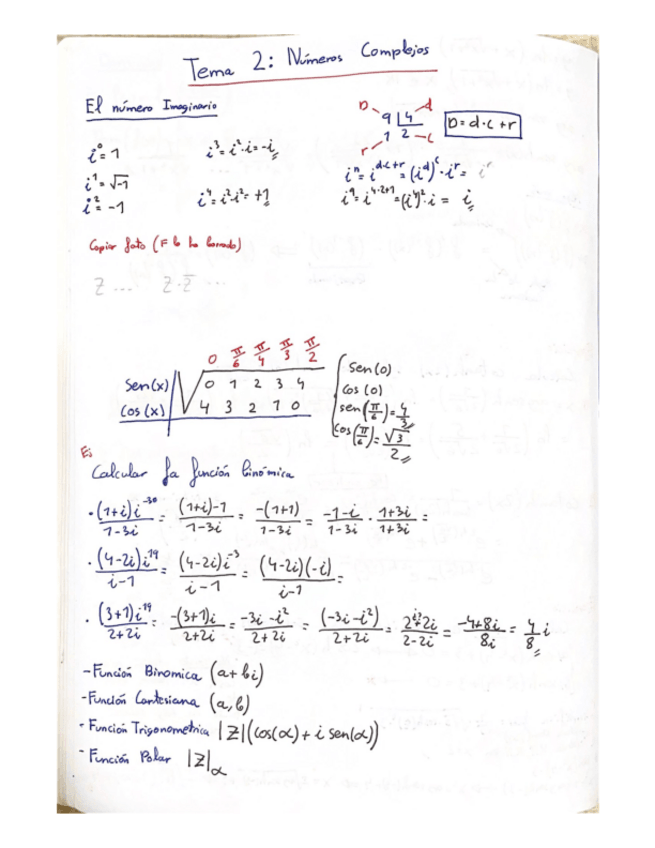 Tema 2: Números Complejos
El número Imaginario
D 9 4 d
r 1 2 c
D = d·c + r
i⁰ = 1
i³ = i²·i = -i
iⁿ = i^(d·c+r) = (i^d)^c · i^r = i^r
i¹ = √-1
i⁴ = i²·i² = +1
i⁹ = i^(4·2+1) = (i⁴)²·i = i
i² = -1
Copiar foto (F lo ha borrado)
Z ... Z·Z̄ ...
0 π/6 π/4 π/3 π/2
Sen(x) √ 0 1 2 3 4
Cos(x) 4 3 2 1 0
Sen(0)
Cos(0)
sen(π/6) =
cos(π/6) = √3/2
Ej
Calcular la función binómica
· (1+i)i^-30/1-3i = (1+i)-1/1-3i = -(1+1)/1-3i = -1-i/1-3i · 1+3i/1+3i =
· (4-2i)i^19/i-1 = (4-2i)i^-3/i-1 = (4-2i)(-i)/i-1 =
· (3+1)i^19/2+2i = -(3+1)i/2+2i = -3i-i²/2+2i = (-3i-i²)/2+2i = /2-2i = -4+8i/8i = 4/8 i
- Función Binomica (a+bi)
- Función Cartesiana (a,b)
- Función Trigonometrica |Z|(cos(α) + i sen(α))
- Función Polar |Z|α